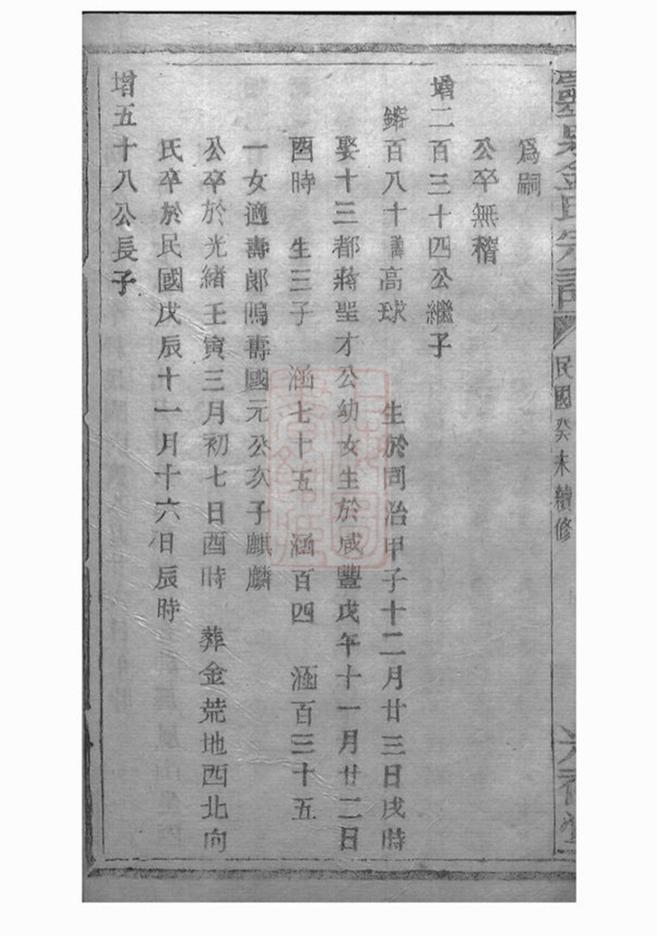 民國癸未續修
爲嗣
公卒無稽
增二百三十四公繼子
百八十 高球 生於同治甲子十二月廿三日戌時
娶十三都蔣聖才公幼女生於咸豐戊午十一月廿二日
酉時 生三子 涵七十五 涵百四 涵百三十五
一女適壽郞塢壽國元公次子麒麟
公卒於光緒壬寅三月初七日酉時 葬金荒地西北向
氏卒於民國戊辰十一月十六日辰時
增五十八公長子